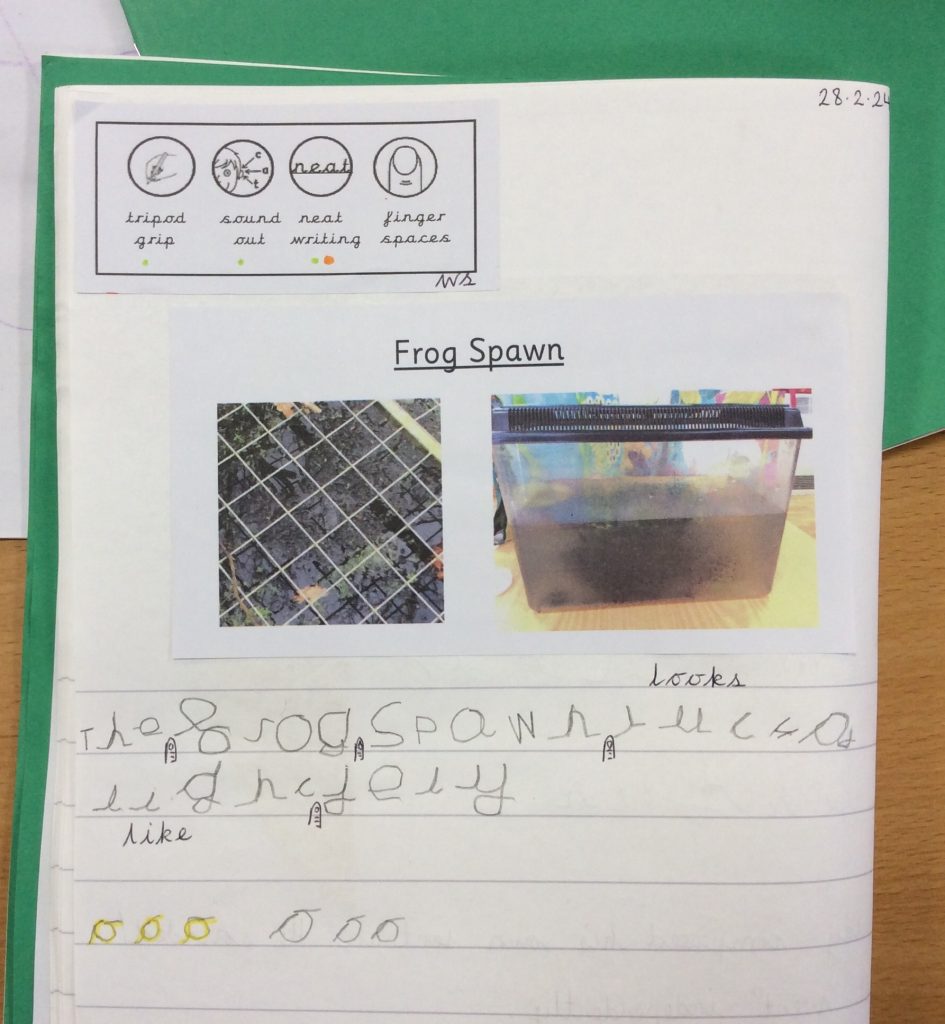 28.2.24
neat
c
a
t
tripod grip
sound out
neat writing
finger spaces
ws
Frog Spawn
looks
The frog Spawn
jely
like